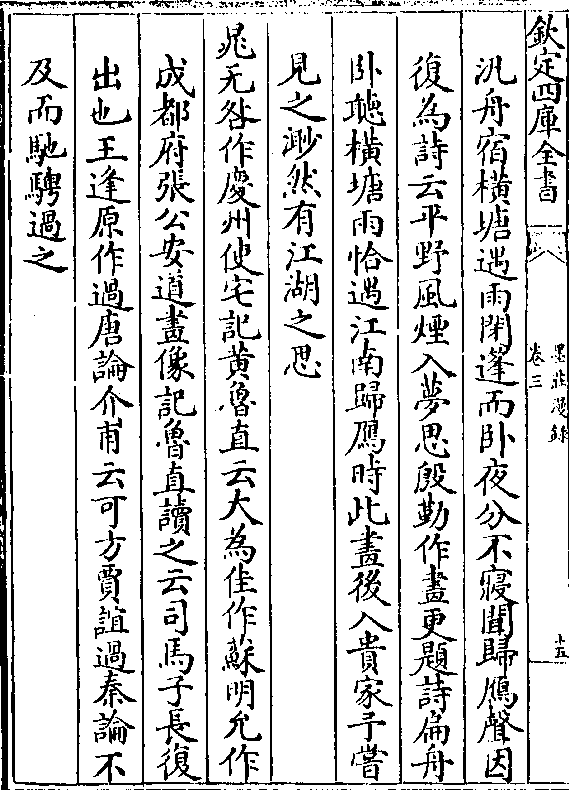 欽定四庫全書
墨莊漫錄
卷三
十五
汎舟宿橫塘遇雨閉蓬而卧夜分不寢聞歸鴈聲因
復為詩云平野風煙入夢思殷勤作畫更題詩扁舟
卧聴橫塘雨恰遇江南歸鴈時此畫後入貴家予嘗
見之渺然有江湖之思
晁无咎作慶州使宅記黄魯直云大為佳作蘇明允作
成都府張公安道畫像記魯直讀之云司馬子長復
出也王逢原作過唐論介甫云可方賈誼過秦論不
及而馳騁過之